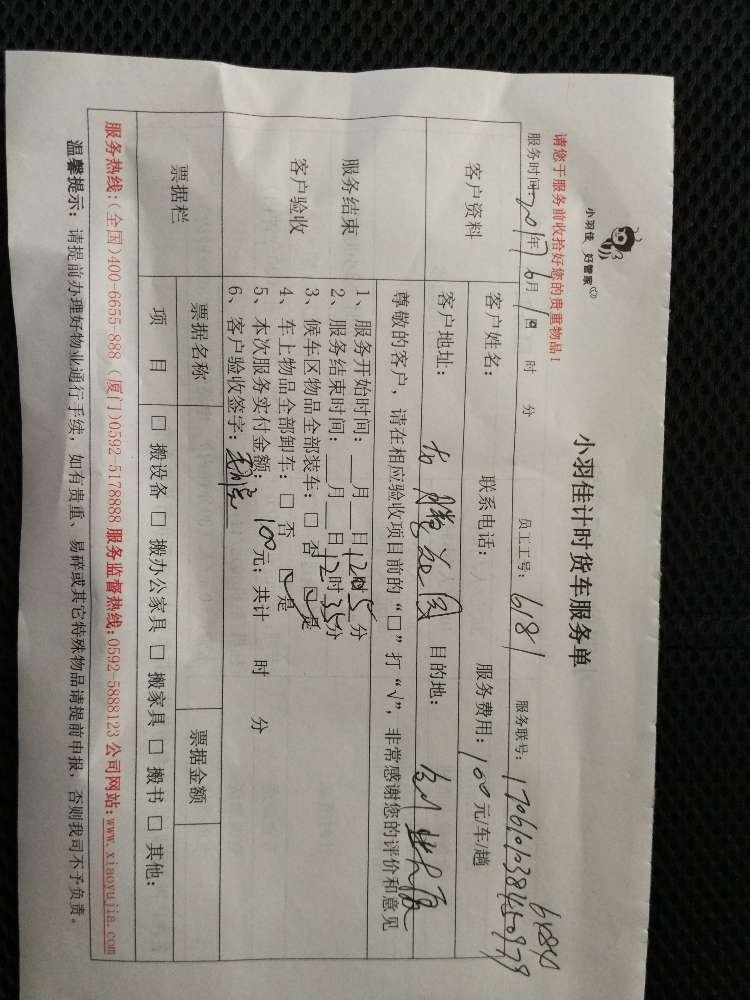 小羽佳 好管家
小羽佳计时货车服务单
请您于服务前收拾好您的贵重物品！
服务时间：2017年6月1日 时 分 员工工号：6181 服务联号：
客户资料
客户姓名： 联系电话： 服务费用：100元/车/趟
客户地址： 花园 目的地：
服务结束
客户验收
尊敬的客户，请在相应验收项目前的“□”打“√”，非常感谢您的评价和意见
1、服务开始时间：__月__日12时5分
2、服务结束时间：__月__日12时35分
3、候车区物品全部装车：□ 否 ☑ 是
4、车上物品全部卸车：□ 否 ☑ 是
5、本次服务实付金额：100元；共计 时 分
6、客户验收签字：
票据栏
票据名称 票据金额
项 目 □ 搬设备 □ 搬办公家具 □ 搬家具 □ 搬书 □ 其他：
服务热线：(全国)400-6655-888 (厦门)0592-5178888 服务监督热线：0592-5888123 公司网站：www.xiaoyujia.com
温馨提示：请提前办理好物业通行手续，如有贵重、易碎或其它特殊物品请提前申报，否则我司不予负责。